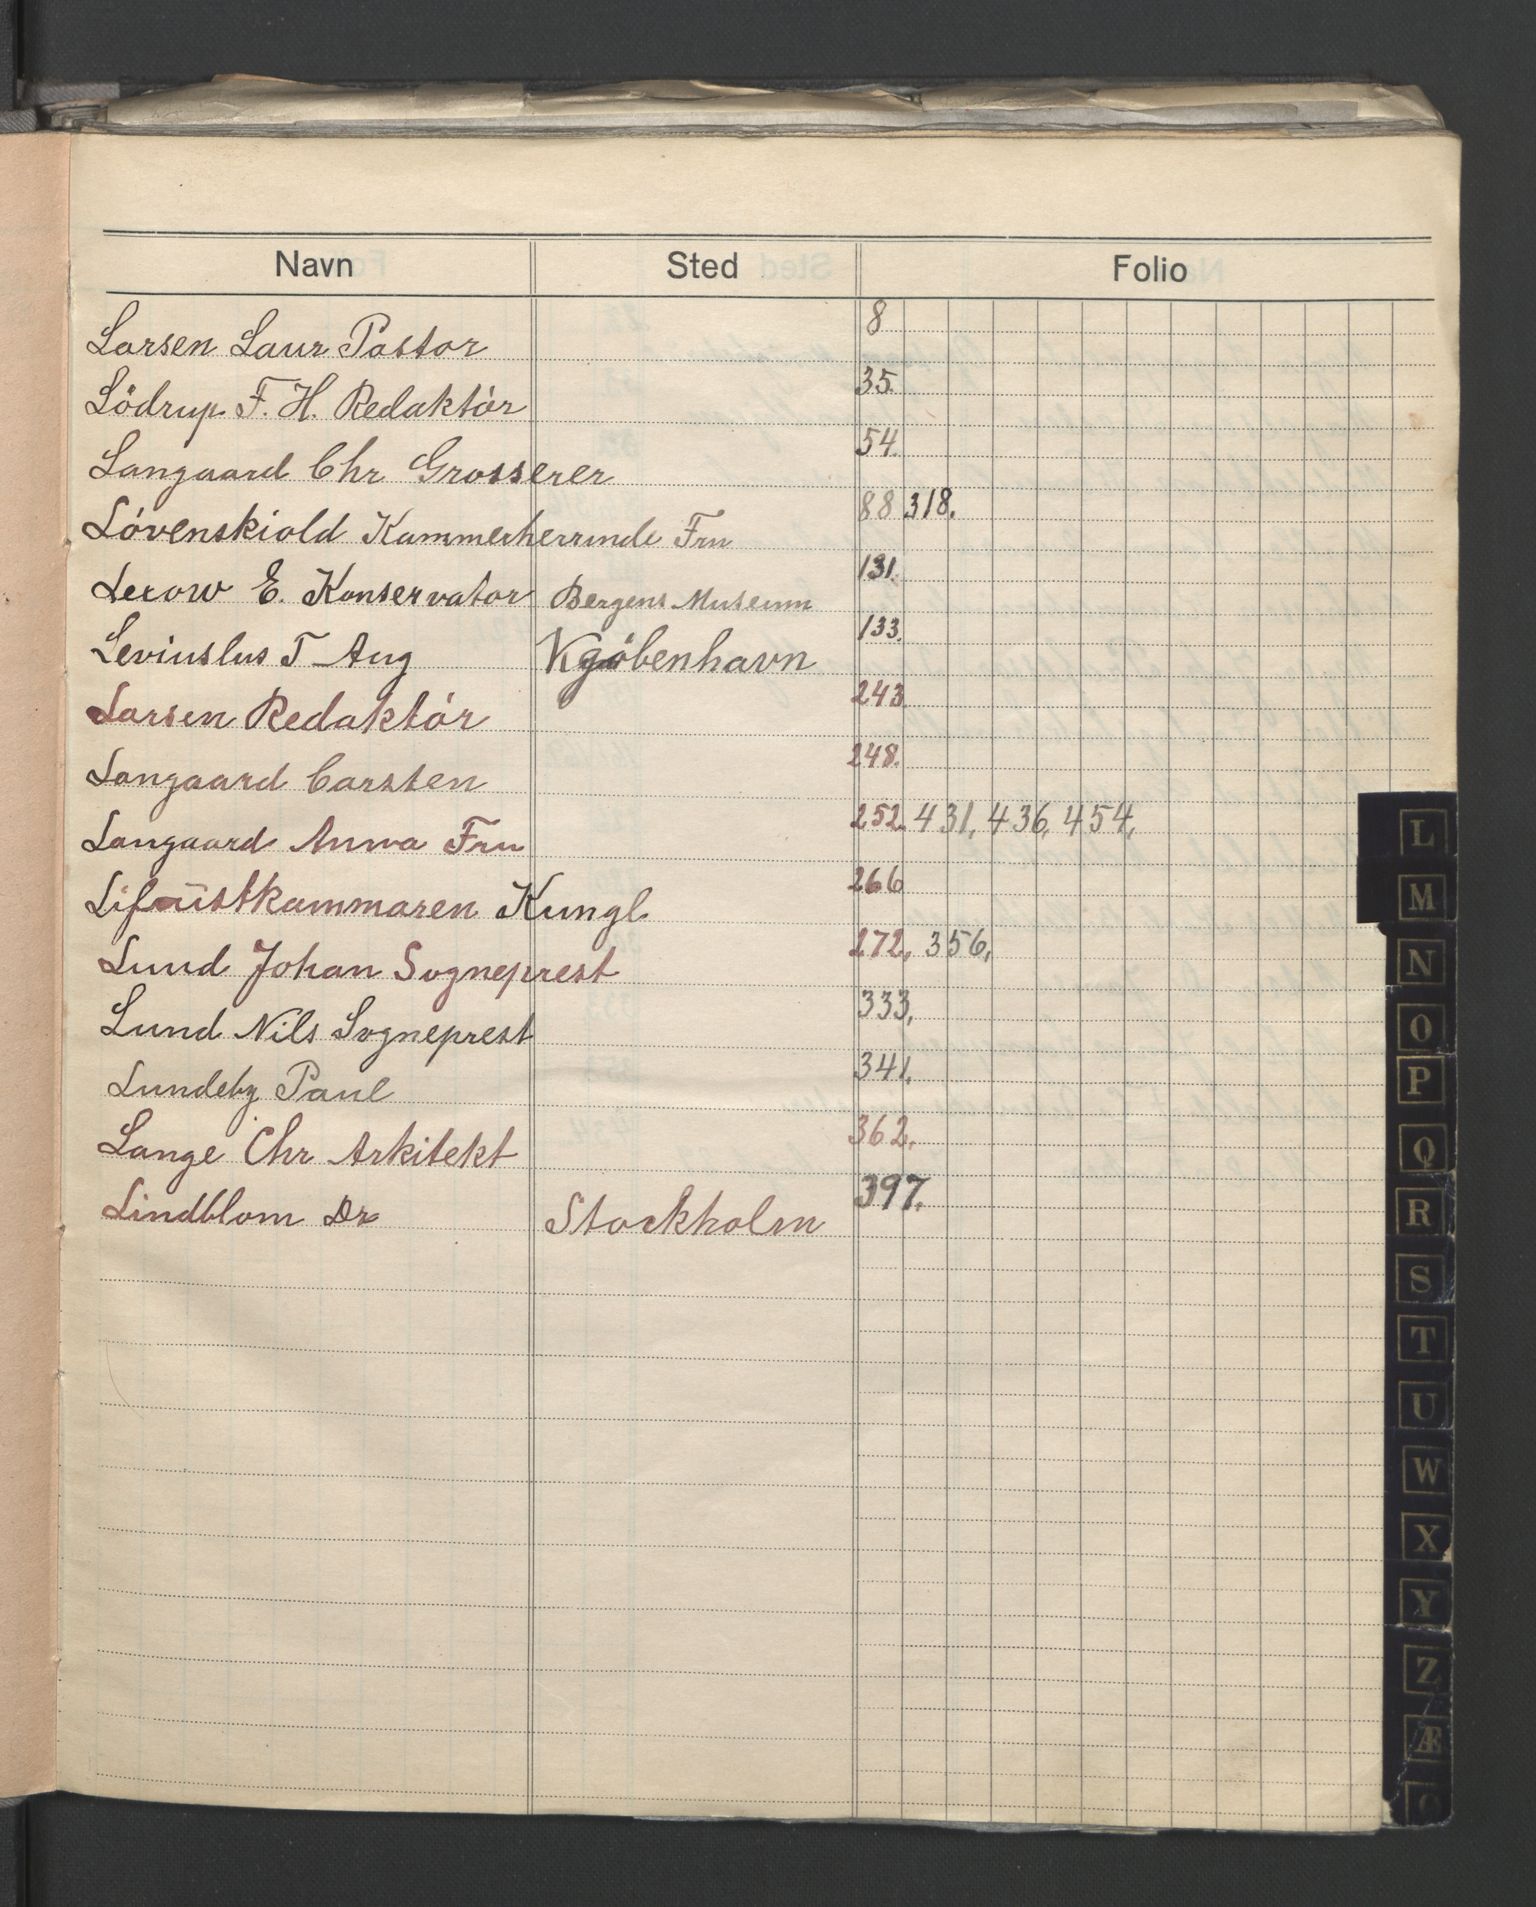 Navn Sted Folio
Larsen Laur Pastor 8
Lödrup F. H. Redaktör 35.
Langaard Chr Grosserer 54.
Lövenskiold Kammerherrinde Fru 88 318.
Lexow E. Konservator Bergens Museum 131.
T Aug Kjöbenhavn 133.
Larsen Redaktör 243
Langaard Carsten 248.
Langaard Anna Fru 252. 431, 436, 454,
Lifrüstkammaren Kungl 266
Lund Johan Sogneprest 272, 356,
Lund Nils Sogneprest 333,
Lundeby Paul 341,
Lange Chr Arkitekt 362,
Lindblom Dr Stockholm 397.
L
M
N
O
P
Q
R
S
T
U
W
X
Y
Z
Æ